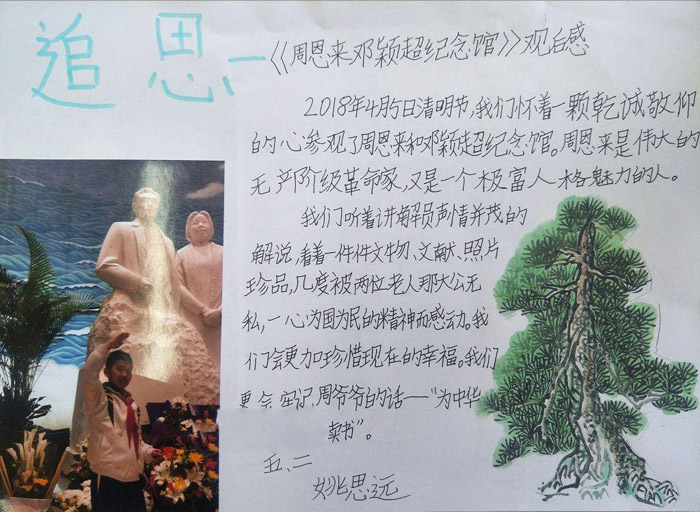 追思—《周恩来邓颖超纪念馆》观后感
2018年4月5日清明节,我们怀着一颗乾诚敬仰
的心参观了周恩来和邓颖超纪念馆。周恩来是伟大的
无产阶级革命家,又是一个极富人格魅力的人。
我们听着讲解员声情并茂的
解说,看着一件件文物、文献、照片
珍品,几度被两位老人那大公无
私,一心为国为民的精神而感动。我
们会更加珍惜现在的幸福。我们
更会牢记周爷爷的话——“为中华
读书”。
五、二
姚思远